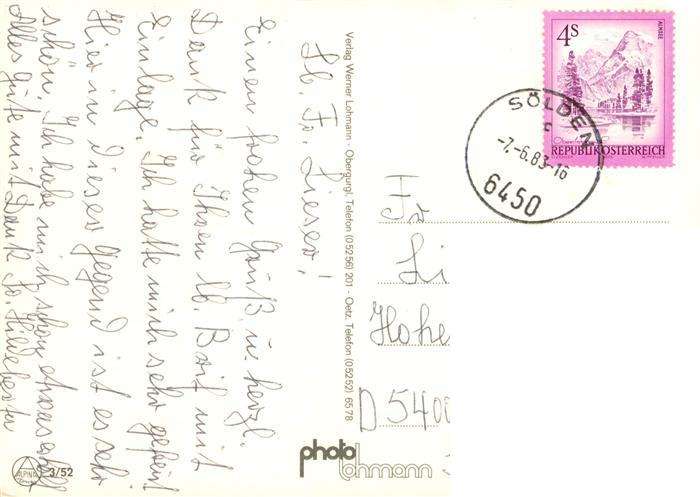 Lb. Fr. Lieser!
Einen frohen Gruß u. herzl.
Dank für Ihren lb. Brief mit
Einlage. Ich hatte mich sehr gefreut
Hier in dieser Gegend ist es sehr
schön. Ich habe mich schon etwas erholt
Alles gute mit Dank Sr. Hildeberta
Verlag Werner Lohmann - Obergurgl, Telefon (05256) 201 - Oetz, Telefon (05252) 6578
photo
lohmann
ALPINA
3/52
4S
ALMSEE
REPUBLIK ÖSTERREICH
SÖLDEN
c
-7.-6.83-16
6450
Fr
Li
Hohe
D 5400